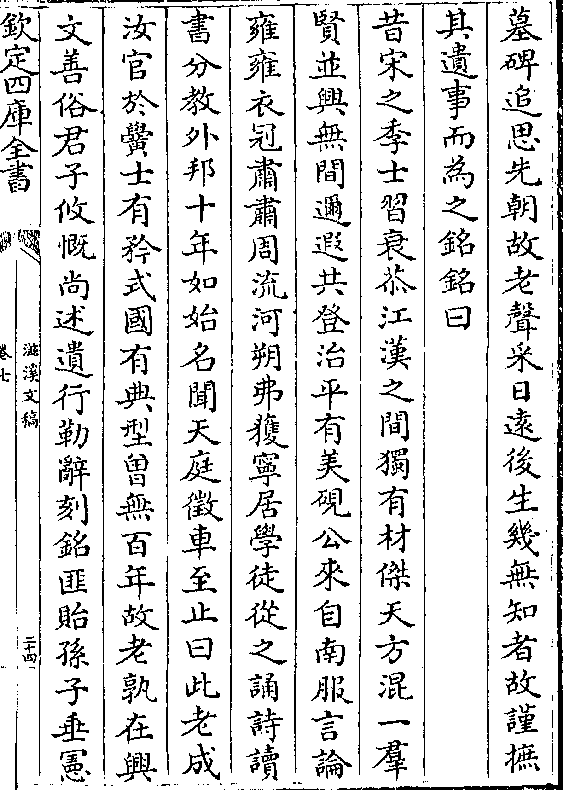 墓碑追思先朝故老聲采日遠後生幾無知者故謹摭
其遺事而為之銘銘曰
昔宋之季士習衰苶江漢之間獨有材傑天方混一羣
賢並興無間邇遐共登治平有美硯公來自南服言論
雍雍衣冠肅肅周流河朔弗獲寧居學徒從之誦詩讀
書分教外邦十年如始名聞天庭徵車至止曰此老成
汝官於黌士有矜式國有典型曾無百年故老孰在興
文善俗君子攸慨尚述遺行勒辭刻銘匪貽孫子垂憲
欽定四庫全書
滋溪文稿
卷七
二十四